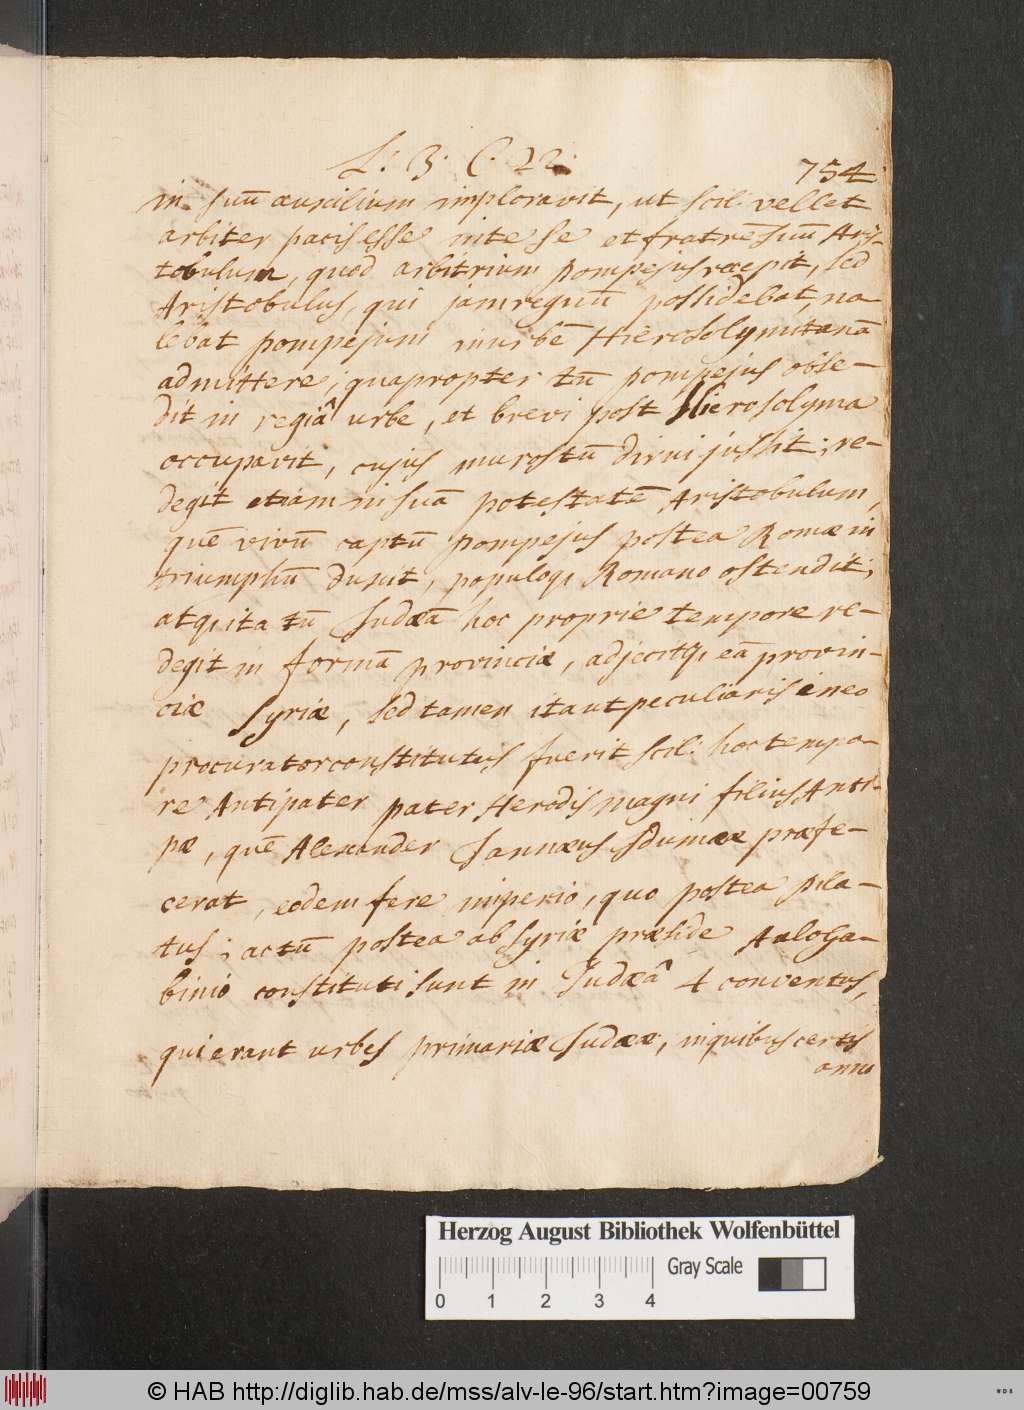 L: 3. C. 22.
754
in suū auxilium imploravit, ut scil: vellet
arbiter pacis esse inte se et fratrē suū Aris-
tobulum, quod arbitrium pompejus recepit, sed
Aristobulus, qui jam regnū possidebat, no
lebat pompejum in urbē Hierosolymitanā
admittere; quapropter tū pompejus obse-
dit in regiâ urbe, et brevi post Hierosolyma
occupavit, cujus muros tū dirui jussit; re-
degit etiam in suā potestatē Aristobulum,
quē vivū captū pompejus postea Romæ in
triumphū duxit, populoq; Romano ostendit;
atq; ita tū Judæā hoc proprie tempore re-
degit in formā provinciæ, adjecitq; eā provin-
ciæ Syriæ, sed tamen ita ut peculiaris in eo
procurator constitutus fuerit scil: hoc tempo-
re Antipater pater Herodis magni filius Anti-
pæ, quē Alexander Jannæus Idumææ præfe-
cerat, eodem fere imperio, quo postea Pila-
tus; ac tū postea ab Syriæ præside Aulo Ga-
binio constituti sunt in Judæâ 4 conventus,
qui erant urbes primariæ Judææ, in quibus certis
anni
Herzog August Bibliothek Wolfenbüttel
Gray Scale
0 1 2 3 4
© HAB http://diglib.hab.de/mss/alv-le-96/start.htm?image=00759